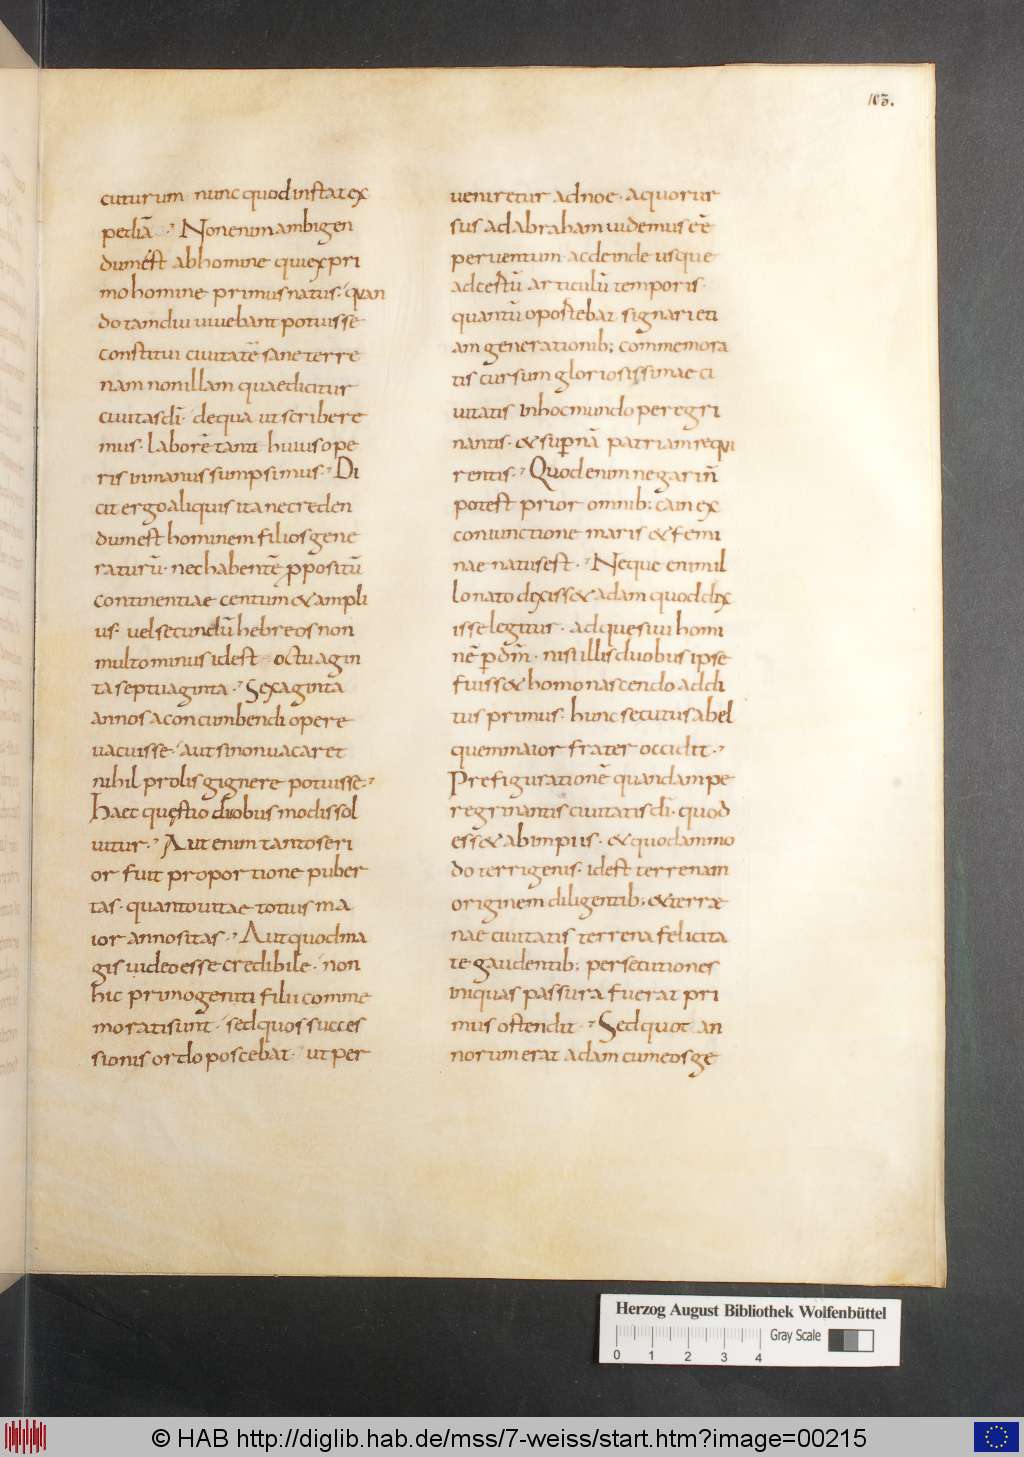 103.
cuturum · nunc quod instat ex
pediā · Non enim ambigen
dum ést ab homine qui ex pri
mo homine primus natus · quan
do tam diu uiuebant potuisse
constitui ciuitatē sane terre
nam non illam quae dicitur
ciuitas dī · de qua ut scribere
mus · laborē tanti huius ope
ris in manus sumpsimus · Di
cit ergo aliquis ita ne creden
dum est hominem filios gene
raturū · nec habentē ppositū
continentiae centum & ampli
us · uel secundū hebreos non
multo minus id est octuagin
ta septuaginta · Sexaginta
annos a concumbendi opere
uacuisse · aut si non uacaret
nihil prolis gignere potuisse ·
Haec quęstio duobus modis sol
uitur · Aut enim tanto seri
or fuit proportione puber
tas · quanto uitae totius ma
ior annositas · Aut quod ma
gis uideo esse credibile · non
hic primogeniti filii comme
morati sunt · sed quos succes
sionis ordo poscebat · ut per
ueniretur ad noe · a quo rur
sus ad abraham uidemus eē
peruentum · ac deinde usque
ad certū articulū temporis ·
quantū oportebat signari eti
am generationib; commemora
tis cursum gloriosissimae ci
uitatis in hoc mundo peregri
nantis · & supnā patriam requi
rentis · Quod enim negari ñ
potest prior omnib; cain ex
coniunctione maris & femi
nae natus est · Neque enim il
lo nato dixiss& adam quod dix
isse legitur · adquesiui homi
nē p dnm̄ · nisi illis duobus ipse
fuiss& homo nascendo addi
tus primus · hunc secutus abel
quem maior frater occidit ·
Prefigurationē quandam pe
regrinantis ciuitatis dī · quod
ess& ab impiis · & quodammo
do terrigenis · id est terrenam
originem diligentib; & terræ
nae ciuitatis terrena felicita
te gaudentib; persecutiones
iniquas passura fuerat pri
mus ostendit · Sed quot an
norum erat adam cum eos ge
Herzog August Bibliothek Wolfenbüttel
Gray Scale
0 1 2 3 4
© HAB http://diglib.hab.de/mss/7-weiss/start.htm?image=00215